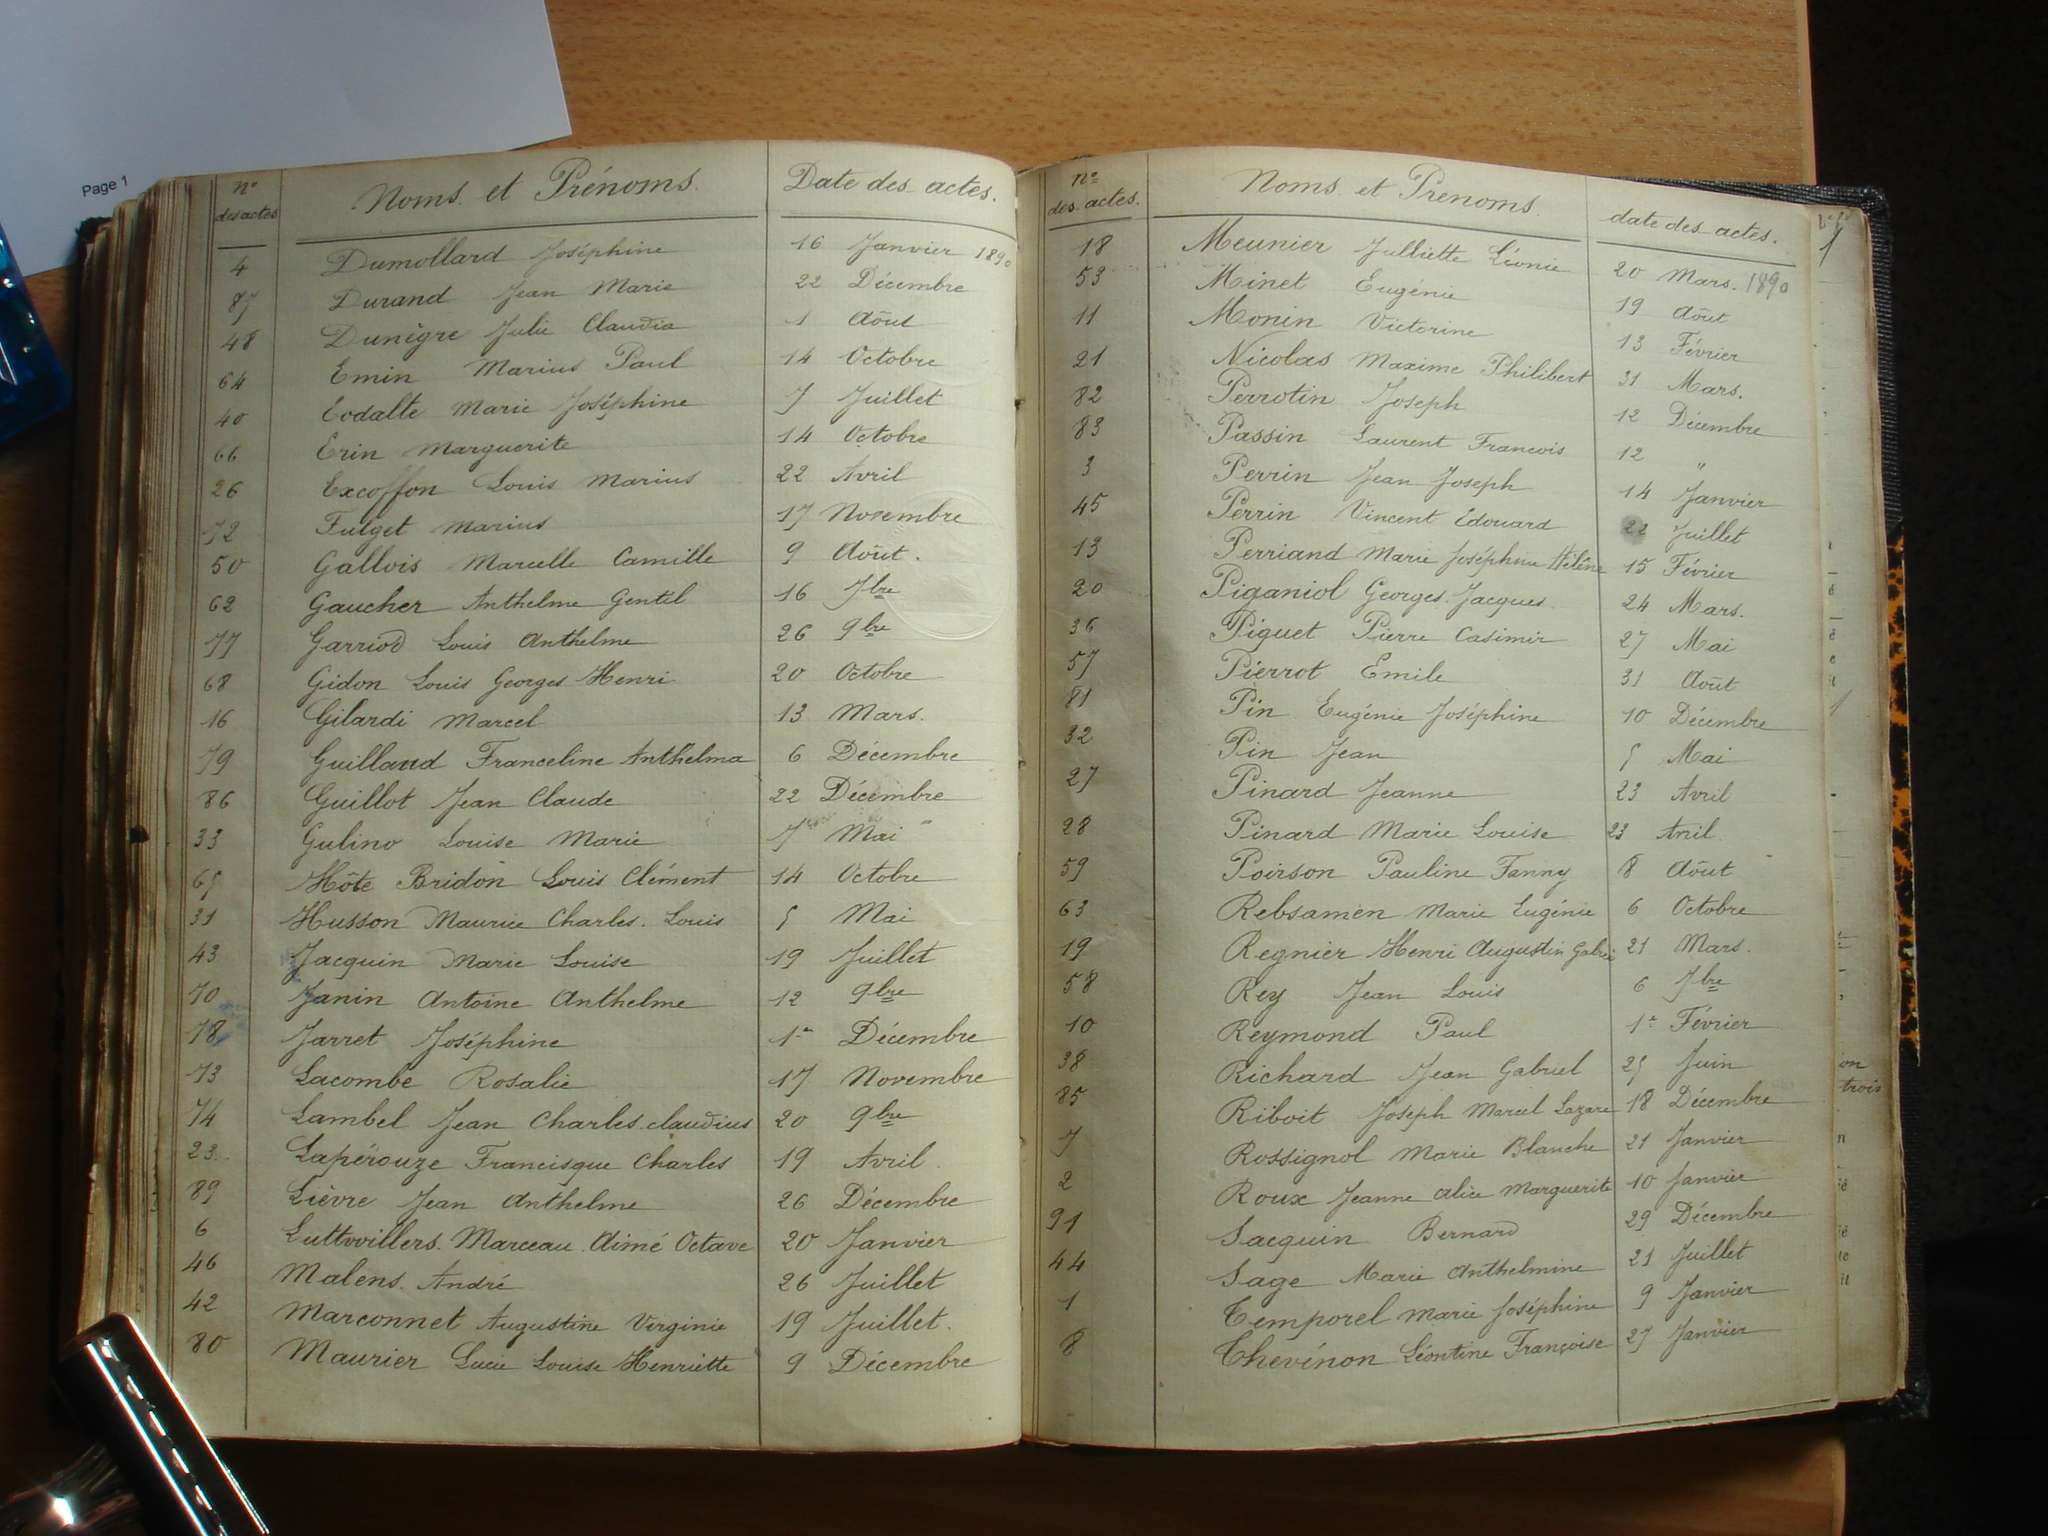 Page 1
n° des actes Noms et Prénoms. Date des actes.
4 Dumollard Joséphine 16 Janvier 1890
87 Durand Jean Marie 22 Décembre
48 Dunègre Julie Claudia 1 Août
64 Emin Marius Paul 14 Octobre
40 Eodalte Marie Joséphine 7 Juillet
66 Erin Marguerite 14 Octobre
26 Excoffon Louis Marius 22 Avril
72 Fulget Marius 17 Novembre
50 Gallois Marcelle Camille 9 Août.
62 Gaucher Anthelme Gentil 16 7bre
77 Garriod Louis Anthelme 26 9bre
68 Gidon Louis Georges Henri 20 Octobre
16 Gilardi Marcel 13 Mars.
79 Guilland Franceline Anthelma 6 Décembre
86 Guillot Jean Claude 22 Décembre
33 Gulino Louise Marie 7 Mai
65 Hôte Bridon Louis Clément 14 Octobre
31 Husson Maurice Charles. Louis 5 Mai
43 Jacquin Marie Louise 19 Juillet
70 Janin Antoine Anthelme 12 9bre
78 Jarret Joséphine 1er Décembre
73 Lacombe Rosalie 17 Novembre
74 Lambel Jean Charles claudius 20 9bre
23 Lapérouze Francisque Charles 19 Avril
89 Lièvre Jean Anthelme 26 Décembre
6 Luttovillers. Marceau. Aimé Octave 20 Janvier
46 Malens. André 26 Juillet
42 Marconnet Augustine Virginie 19 Juillet.
80 Maurier Lucie Louise Henriette 9 Décembre
n° des actes. Noms et Prenoms. date des actes.
18 Meunier Julliette Léonie 20 Mars. 1890
53 Minet Eugénie 19 Août
11 Monin Victorine 13 Février
21 Nicolas Maxime Philibert 31 Mars.
82 Perrotin Joseph 12 Décembre
83 Passin Laurent Francois 12 "
3 Perrin Jean Joseph 14 Janvier
45 Perrin Vincent Edouard 22 Juillet
13 Perriand Marie Joséphine Hélène 15 Février
20 Piganiol Georges Jacques 24 Mars.
36 Piguet Pierre Casimir 27 Mai
57 Pierrot Emile 31 Août
81 Pin Eugénie Joséphine 10 Décembre
32 Pin Jean 5 Mai
27 Pinard Jeanne 23 Avril
28 Pinard Marie Louise 23 Avril
59 Poirson Pauline Fanny 8 Août
63 Rebsamen Marie Eugénie 6 Octobre
19 Regnier Henri Augustin 21 Mars.
58 Rey Jean Louis 6 7bre
10 Reymond Paul 1er Février
38 Richard Jean Gabriel 25 Juin
85 Riboit Joseph Marcel Lazare 18 Décembre
7 Rossignol Marie Blanche 21 Janvier
2 Roux Jeanne Alice Marguerite 10 Janvier
91 Sacquin Bernard 29 Décembre
44 Sage Marie Anthelmine 21 Juillet
1 Temporel Marie Joséphine 9 Janvier
8 Thevénon Léontine Françoise 27 Janvier
trois